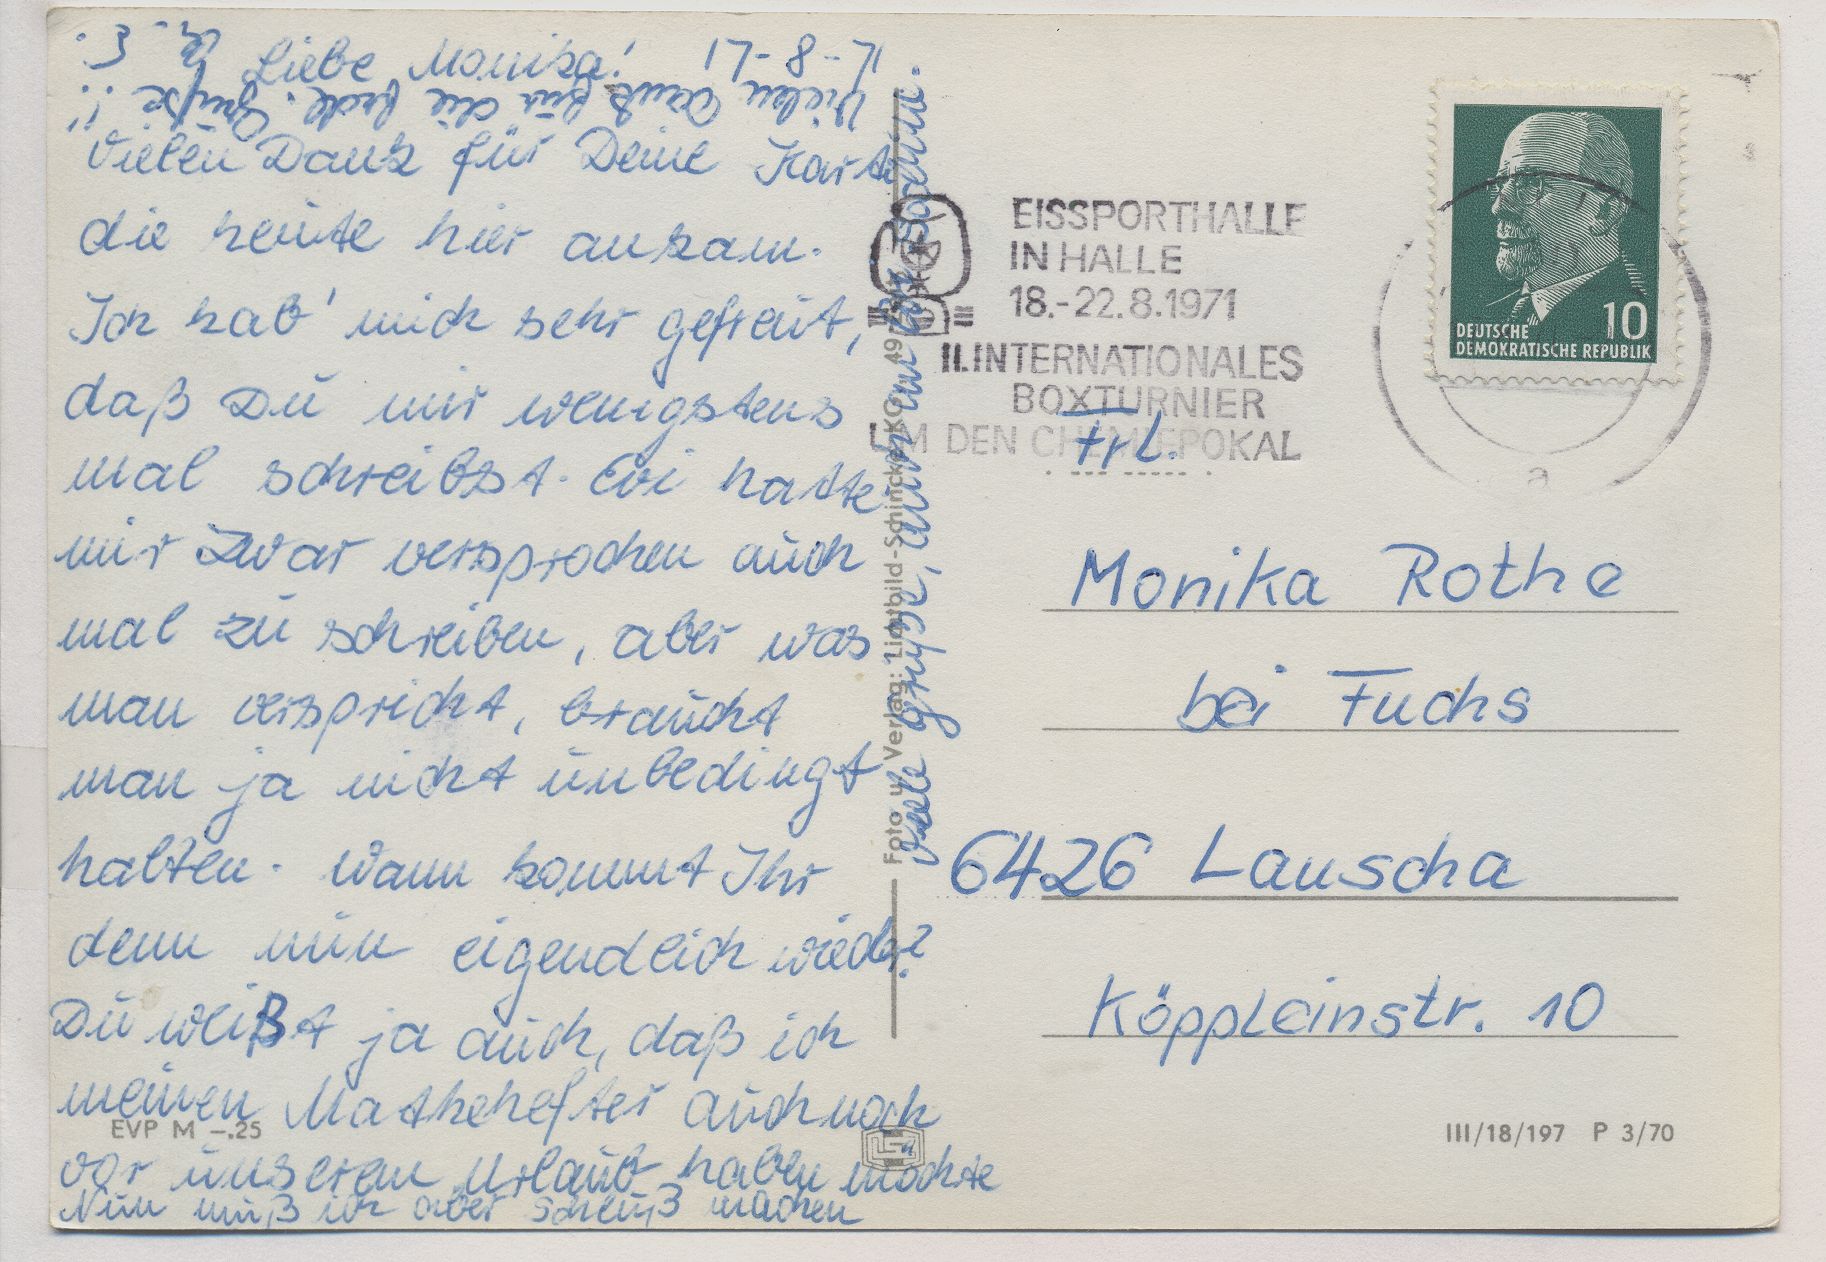 17-8-71
Liebe Monika!
Vielen Dank für Deine Karte
die heute hier ankam.
Ich hab' mich sehr gefreut,
daß Du mir wenigstens
mal schreibst. Evi hatte
mir zwar versprochen auch
mal zu schreiben, aber was
man verspricht, braucht
man ja nicht unbedingt
halten. Wann kommt Ihr
denn nun eigendlich wieder?
Du weißt ja auch, daß ich
meinen Mathehefter auch noch
vor unserem Urlaub haben möchte
Nun muß ich aber Schluß machen
Viele Grüße, auch an
Vielen Dank für die Grüße !!
EVP M –.25
Foto u. Verlag: Lichtbild-Schincke KG, 49
EISSPORTHALLE
IN HALLE
18.-22.8.1971
II.INTERNATIONALES
BOXTURNIER
UM DEN CHEMIEPOKAL
10
DEUTSCHE
DEMOKRATISCHE REPUBLIK
a
Frl.
Monika Rothe
bei Fuchs
6426 Lauscha
Köppleinstr. 10
III/18/197 P 3/70